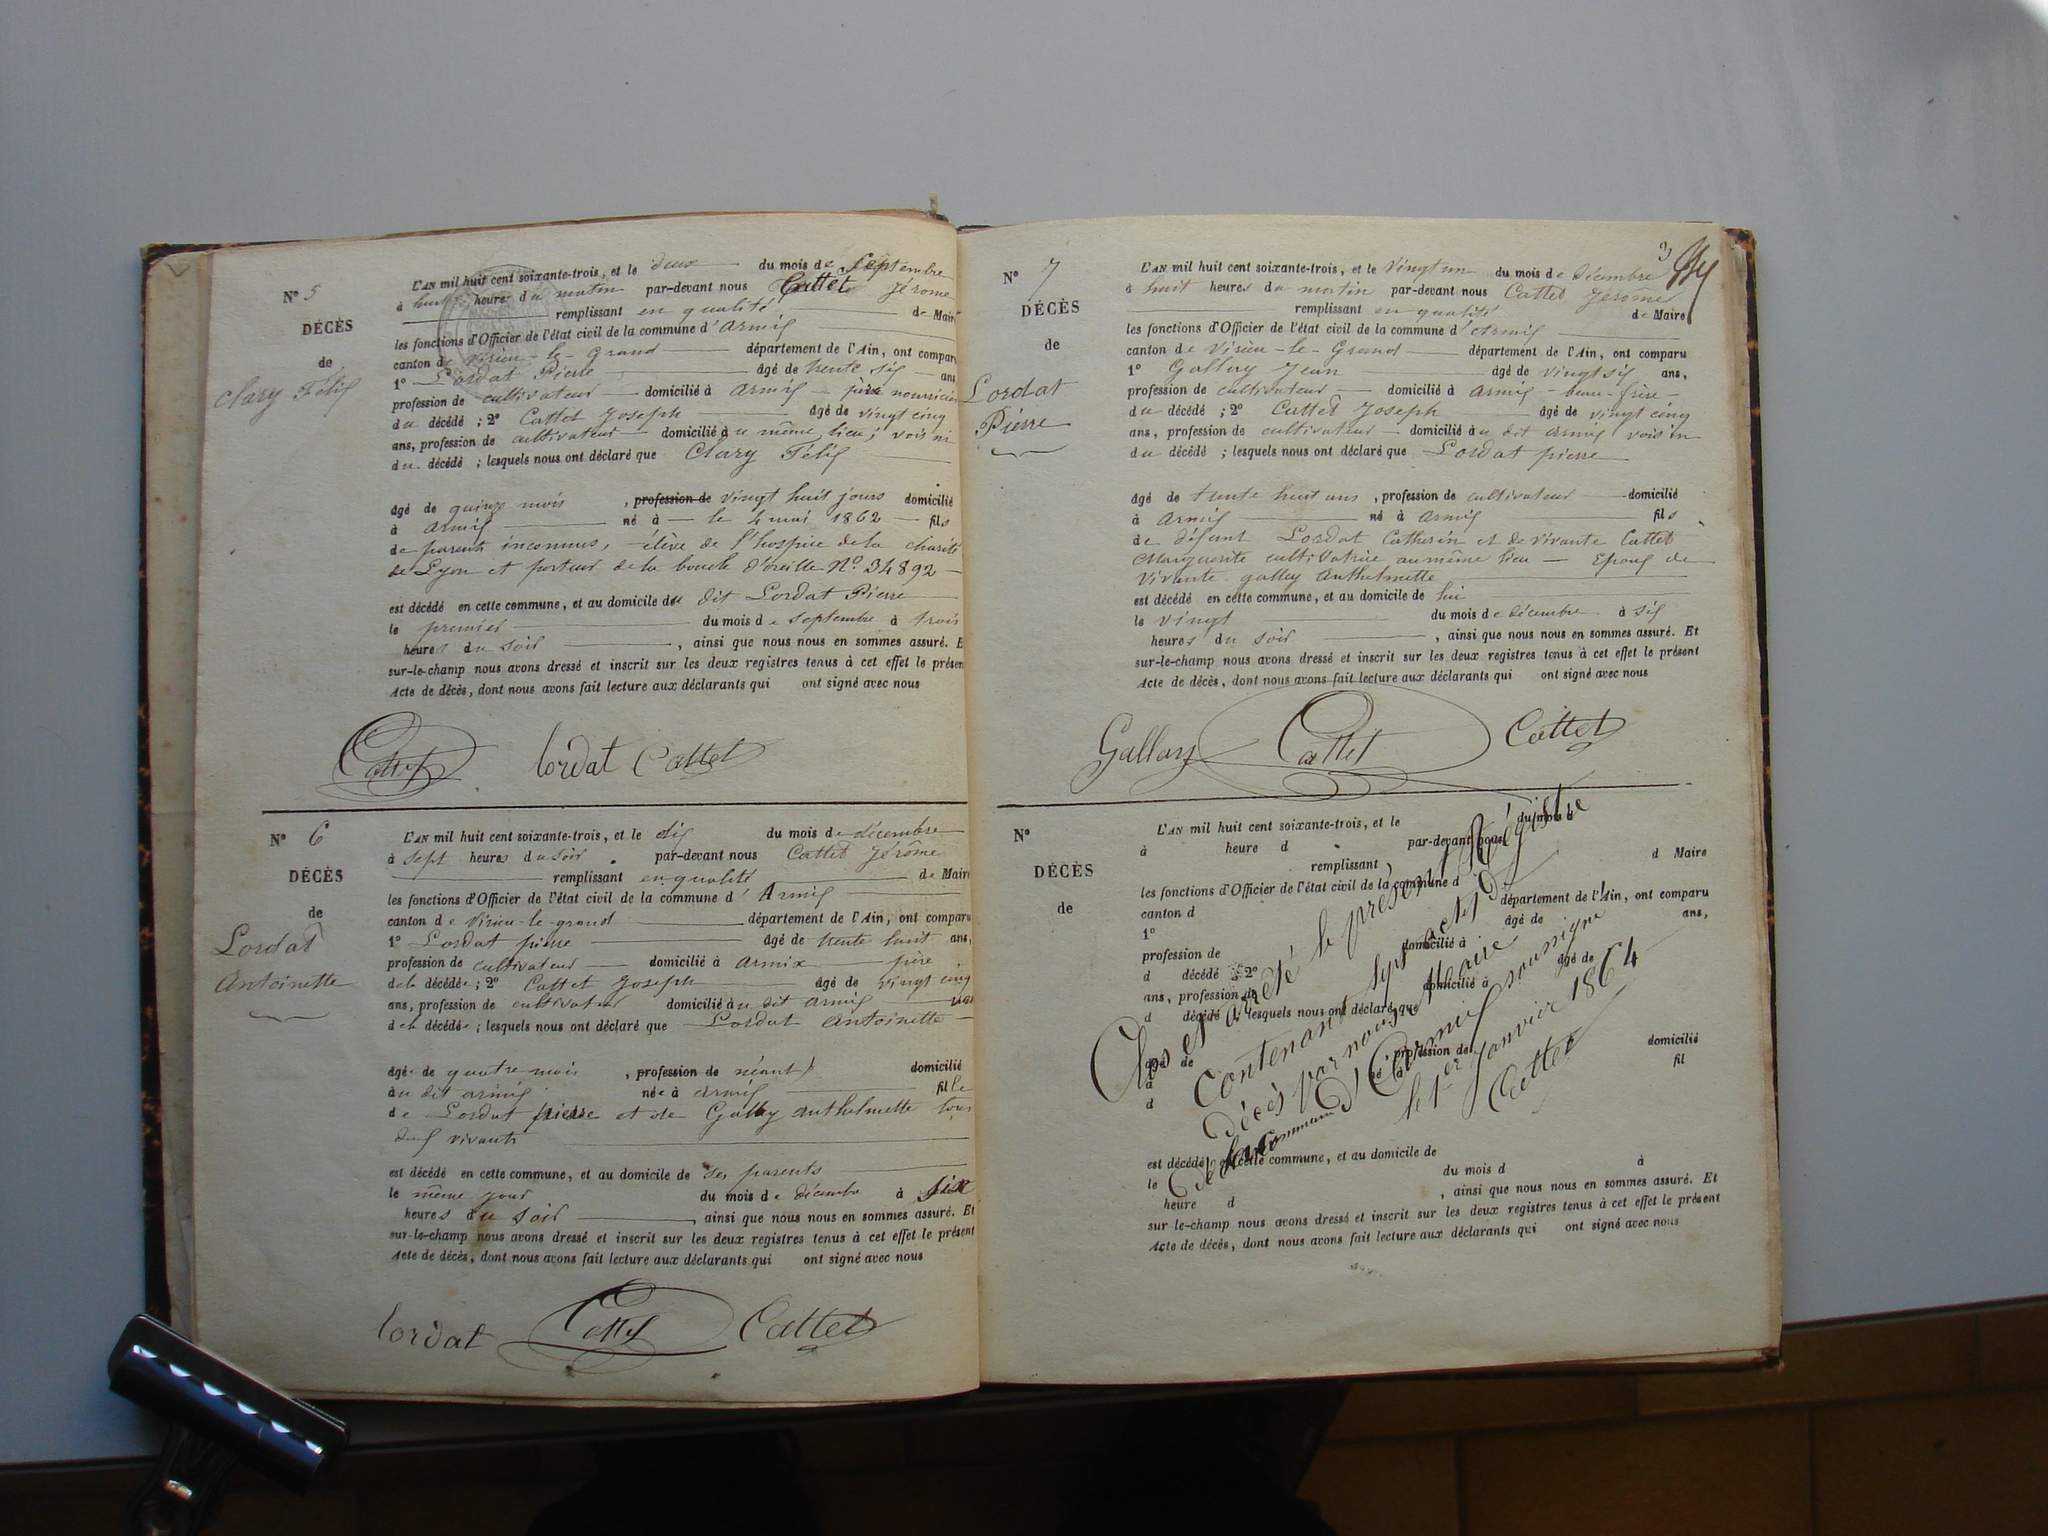 N° 5
DÉCÈS
de
Clary Félix
L'AN mil huit cent soixante-trois, et le deux du mois de Septembre
à huit heures du matin par-devant nous Cattet Jérome
remplissant en qualité de Maire
les fonctions d'Officier de l'état civil de la commune d'Armix
canton de Virieu-le-Grand département de l'Ain, ont comparu
1° Lordat Pierre âgé de trente six ans
profession de cultivateur domicilié à Armix père nourricier
du décédé ; 2° Cattet Joseph âgé de vingt cinq
ans, profession de cultivateur domicilié au même lieu, voisin
du décédé ; lesquels nous ont déclaré que Clary Félix
âgé de quinze mois , profession de vingt huit jours domicilié
à Armix né à le 4 mai 1862 fils
de parents inconnus, élève de l'hospice de la charité
de Lyon et porteur de la boucle d'oreille N° 34892
est décédé en cette commune, et au domicile du dit Lordat Pierre
le premier du mois de septembre à trois
heures du soir , ainsi que nous nous en sommes assuré. E
sur-le-champ nous avons dressé et inscrit sur les deux registres tenus à cet effet le présen
Acte de décès, dont nous avons fait lecture aux déclarants qui ont signé avec nous
Cattet lordat Cattet
N° 6
DÉCÈS
de
Lordat
Antoinette
L'AN mil huit cent soixante-trois, et le dix du mois de décembre
à sept heures du soir par-devant nous Cattet Jérôme
remplissant en qualité de Maire
les fonctions d'Officier de l'état civil de la commune d'Armix
canton de Virieu-le-grand département de l'Ain, ont comparu
1° Lordat pierre âgé de trente huit ans,
profession de cultivateur domicilié à armix père
de la décédée ; 2° Cattet Joseph âgé de vingt cinq
ans, profession de cultivateur domicilié au dit armix
de la décédée ; lesquels nous ont déclaré que Lordat Antoinette
âgée de quatre mois , profession de néant domicilié
au dit armix née à armix fille
de Lordat pierre et de Gallay anthelmette tous
deux vivants
est décédé en cette commune, et au domicile de ses parents
le même jour du mois de décembre à six
heures du soir , ainsi que nous nous en sommes assuré. Et
sur-le-champ nous avons dressé et inscrit sur les deux registres tenus à cet effet le présent
Acte de décès, dont nous avons fait lecture aux déclarants qui ont signé avec nous
lordat Cattet Cattet
3
N° 7
DÉCÈS
de
Lordat
Pierre
L'AN mil huit cent soixante-trois, et le vingt un du mois de décembre
à huit heures du matin par-devant nous Cattet Jérôme
remplissant en qualité de Maire
les fonctions d'Officier de l'état civil de la commune d'Armix
canton de Virieu-le-Grand département de l'Ain, ont comparu
1° Gallay Jean âgé de vingt six ans,
profession de cultivateur domicilié à Armix beau-frère
du décédé ; 2° Cattet Joseph âgé de vingt cinq
ans, profession de cultivateur domicilié au dit Armix voisin
du décédé ; lesquels nous ont déclaré que Lordat pierre
âgé de trente huit ans , profession de cultivateur domicilié
à Armix né à Armix fils
de défunt Lordat Catherin et de vivante Cattet
Marguerite cultivatrice au même lieu Epoux de
vivante gallay Anthelmette
est décédé en cette commune, et au domicile de lui
le vingt du mois de décembre à six
heures du soir , ainsi que nous nous en sommes assuré. Et
sur-le-champ nous avons dressé et inscrit sur les deux registres tenus à cet effet le présent
Acte de décès, dont nous avons fait lecture aux déclarants qui ont signé avec nous
Gallay Cattet Cattet
N°
DÉCÈS
de
L'AN mil huit cent soixante-trois, et le du mois d
à heure d par-devant nous
remplissant d Maire
les fonctions d'Officier de l'état civil de la commune d
canton d département de l'Ain, ont comparu
1° âgé de ans,
profession de domicilié à
d décédé ; 2° âgé de
ans, profession de domicilié à
d décédé ; lesquels nous ont déclaré que
âgé de profession de domicilié
à né à fil
d
est décédé en cette commune, et au domicile de
le du mois d à
heure d , ainsi que nous nous en sommes assuré. Et
sur le-champ nous avons dressé et inscrit sur les deux registres tenus à cet effet le présent
Acte de décès, dont nous avons fait lecture aux déclarants qui ont signé avec nous
Clos et arrêté le présent Régistre
contenant sept actes de
décès par nous Maire
de la Commune d'Armix soussigné
le 1er Janvier 1864
Cattet